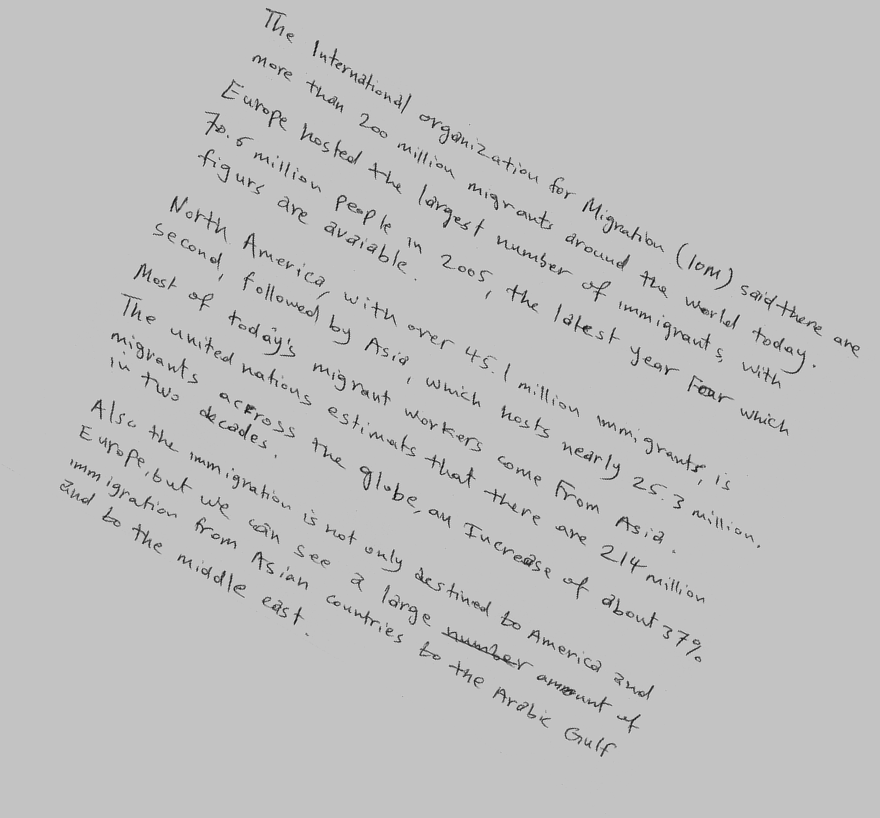 The International organization for Migration (IOM) said there are
more than 200 million migrants around the world today.
Europe hosted the largest number of immigrants, with
70.6 million people in 2005, the latest year Four which
figurs are avaiable.
North America, with over 45.1 million immigrants, is
second, followed by Asia, which hosts nearly 25.3 million.
Most of today's migrant workers come from Asia.
The united nations estimats that there are 214 million
migrants across the globe, an Increase of about 37%
in two decades.
Also the immigration is not only destined to America and
Europe, but we can see a large number amount of
immigration from Asian countries to the Arabic Gulf
and to the middle east.